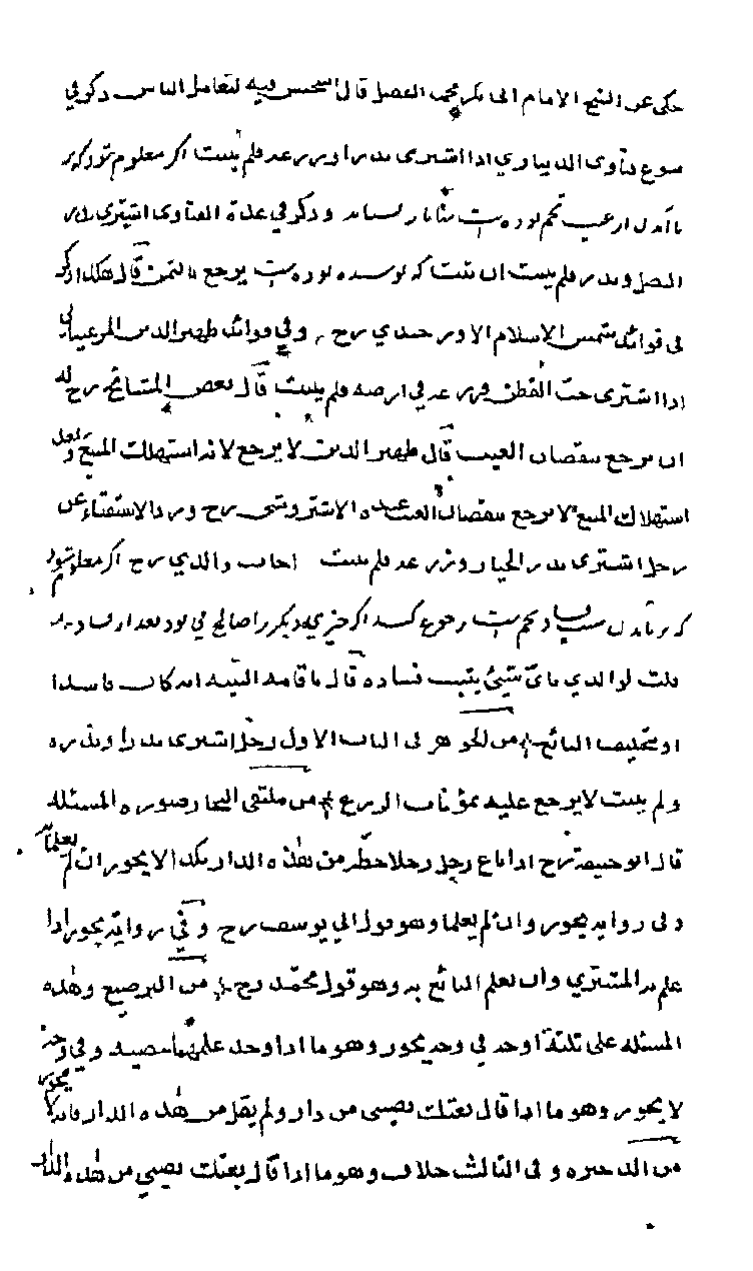 حكى عن الشيخ الامام ابى بكر محمد الفضل قال استحسن فيه لتعامل الناس وذكر في
بيوع فتاوى الديناري اذا اشترى بذرا وزرعه فلم ينبت اكر معلوم شود كه
تخم بوده است وذكر في عدة الفتاوى اشترى بذر
البصل وبذر فلم ينبت ان ثبت كه پوسيده بوده است يرجع بالثمن قال هكذا ذكر
في فوائد شمس الاسلام الاوزجندي رح وفي فوائد ظهير الدين المرغيناني
اذا اشترى حب القطن فزرعه في ارضه فلم ينبت قال بعض المشايخ رح له
ان يرجع بنقصان العيب قال ظهير الدين لا يرجع لانه استهلك المبيع وبعد
استهلاك المبيع لا يرجع بنقصان العيب عنده الاشتروشنى رح ورد الاستفتاء عن
رجل اشترى بذر الخيار وزرعه فلم ينبت اجاب والدي رح اكر معلوم شود
كه بر نآمدن بسبب فساد تخم است رجوع كند اكر چيزى ديكر را صالح نى بود بعد از فساد
قلت لوالدي باي شيئ يثبت فساده قال باقامة البينة انه كان فاسدا
او بتحليف البائع من الجواهر في الباب الاول رجل اشترى بذرا وبذره
ولم ينبت لا يرجع عليه بمؤنات الزرع من ملتقى البحار صورة المسئلة
قال ابو حنيفة رح اذا باع رجل رجلا حظه من هذه الدار بكذا لا يجوز ان لم يعلماه
وفي رواية يجوز وان لم يعلما وهو قول ابي يوسف رح وفي رواية يجوز اذا
علم به المشتري وان لم يعلم البائع به وهو قول محمد رح من الترصيع وهذه
المسئلة على ثلثة اوجه في وجه يجوز وهو ما اذا وجد علمهما بنصيبه وفي وجه
لا يجوز وهو ما اذا قال بعتك نصيبي من دار ولم يقل من هذه الدار فانه لا يجوز
من الذخيره وفي الثالث خلاف وهو ما اذا قال بعتك نصيبي من هذه الدار